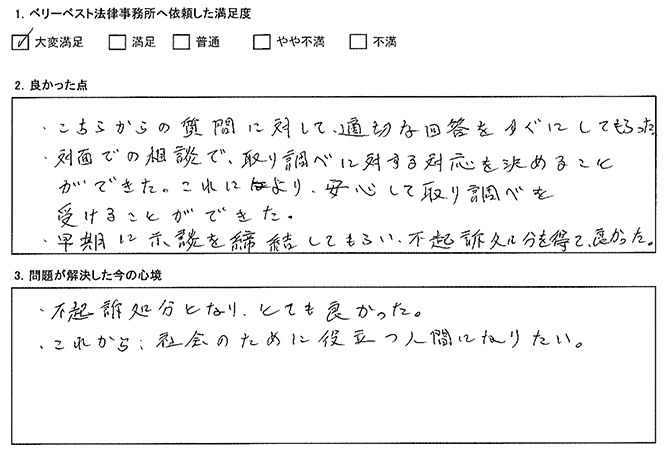 1. ベリーベスト法律事務所へ依頼した満足度
大変満足 満足 普通 やや不満 不満
2. 良かった点
・こちらからの質問に対して、適切な回答をすぐにしてもらった。
・対面での相談で、取り調べに対する対応を決めること
ができた。これにより、安心して取り調べを
受けることができた。
・早期に示談を締結してもらい、不起訴処分を得て、良かった。
3. 問題が解決した今の心境
・不起訴処分となり、とても良かった。
・これから、社会のために役立つ人間になりたい。